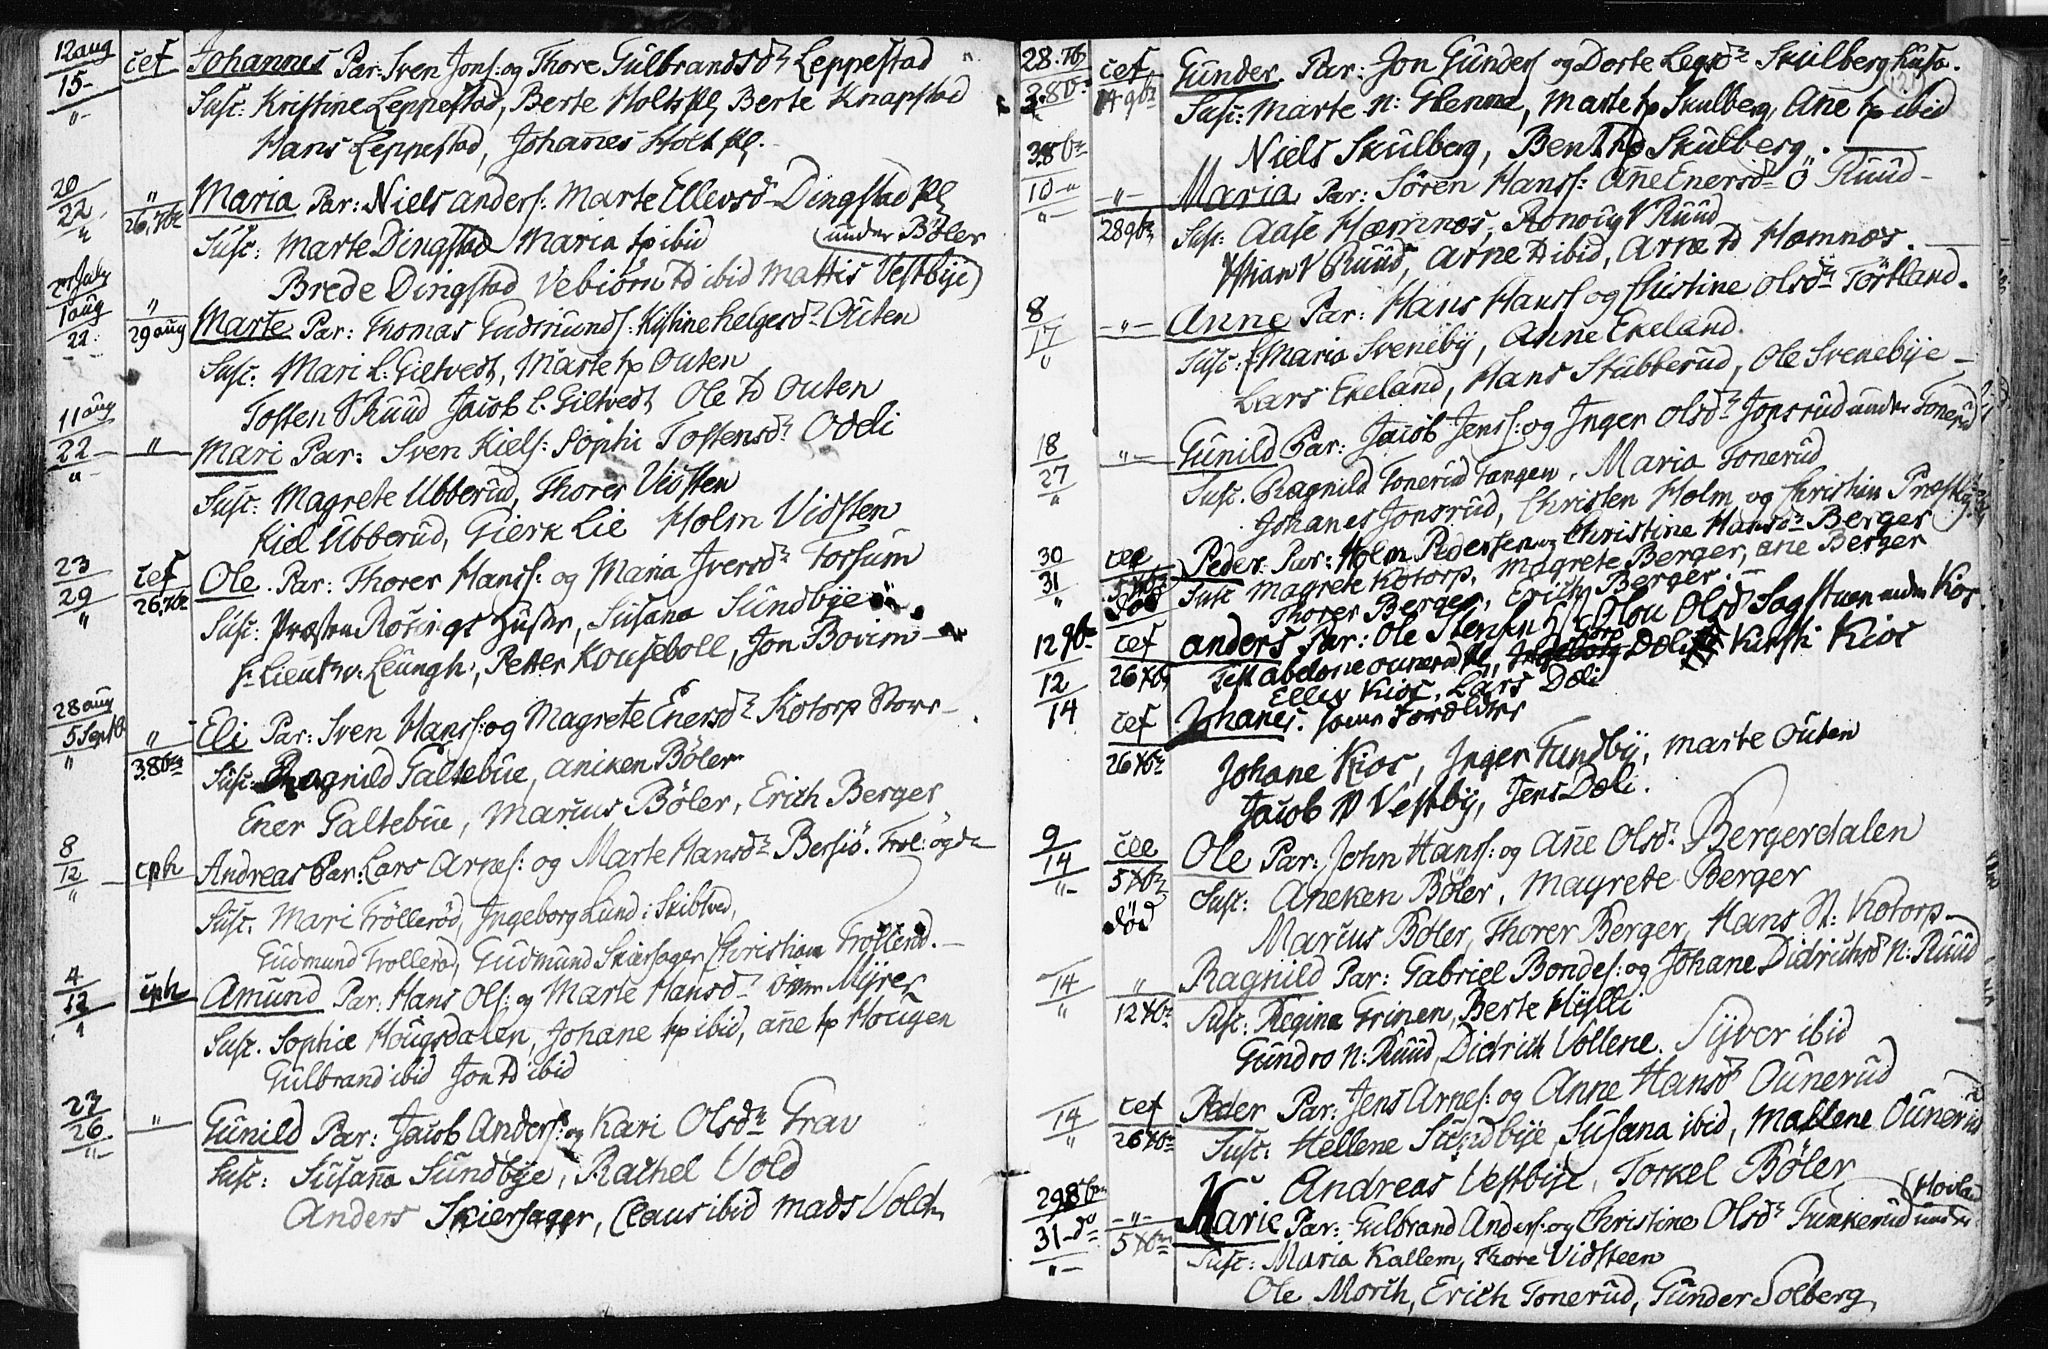 12 aug
15 -
čeſ Johannes Par: Sven Jonſ: og Thore Gulbrandsdr Leppestad
Susc: Kristine Leppestad, Berte Holts Pl, Berte Knapstad
Hans Leppestad, Johanes Holt Pl.
20
22 " Maria Par: Niels anderſ: Marte Ellevsdr Dingstad Pl
26, 7br Susc: Marte Dingstad Maria tp ibid (under Böler
Brede Dingstad Vebiörn td ibid Mattis Vestbÿe)
27 July
1 aug " Marte Par: Thomas Gudmundſ: Kistine helgesdr Outen
22 - 29 aug Susc: Mari L: Giltvedt, Marte tp Outen
Tosten S Ruud Jacob L. Giltvedt Ole td Outen
11 aug
22 - " Mari Par: Sven Kielſ: Sophi Tostensdr Oddi
Susc: Magrete Ubberud, Thorer Vidsten
Kiel Ubberud, Gierk Lie Holm Vidsten
23 čeſ Ole Par: Thorer Hansſ: og Maria Iversdr Torsum
29 26, 7br Susc: Præsten Rosings Huſtr, Susana Sundbÿe
S: Lieutn v: Leungh:, Petter Kouseboll, Jon Bovim
28 aug
5 Septb " Eli Par: Sven Hansſ: og Magrete Enersdr Kotorp Store
3 8br Susc: Ragnild Galtebue, aniken Böler
Ener Galtebue, Marcus Böler, Erich Berger
8
12 cph Andreas Par: Lars Arneſ: og Marte Hansdr Bersiö. Trolögde
Susc: Mari Trölleröd, Ingeborg Lund i Skibtved,
Gudmund Trollerod, Gudmund Skiersager Christian Trollerud.
4
12 cph Amund Par: Hans Olſ: og Marte Hansdr Myrer
Susc. Sophie Hougsdalen, Johane tp ibid, añe tp Hougen
Gulbrand ibid Jon td ibid
27
26 " Gunild Par: Jacob Anderſ: og Kari Olsdr Grav
Susc: Susaña Sundbÿe, Rachel Vold
Anders Skiersager, Claus ibid mads Vold
28. 7br čeſ Gunder. Par: Jon Gunderſ og Dorte Legsdr Skulberg husm.
14 9br Susc: Marte n: Glenne, Marte tp Skulberg, Añe tp ibid
3 8br Niels Skulberg, Bent td Skulberg.
10 - - " - Maria Par: Sören Hansſ: Ane Enersdr ö Ruud -
28 9br Susc: Aase Hæmnæs, Ronoug V Ruud
Kristian V Ruud, Arne td ibid, Arne td Hæmnæs.
8
17 - " - Anne Par: Hans Hansſ og Christine Olsdr Törtland.
Susc: Maria Svenebÿ, Anne Ekeland.
Lars Ekeland, Hans Stubberud, Ole Svenebÿe -
18
27 - " - Gunild Par: Jacob Jensſ: og Inger Olsdr Jonsrud under Tonerud
Susc. Ragnild Tonerud Tangen, Maria Tonerud
Johanes Jonsrud, Christen Holm og Christian Præstg:
30 čee Peder Par: Holm Pedersen og Christine Hansdr Berger
31 5 Xbr Susc Magrete Kotorp, Magrete Berger, ane Berger
död Thorer Berger, Erich Berger.
12 9br čeſ anders Par: Ole Olou Olsdr Sagstuen under Kios
12 26 Xbr Pl, Dæli Kirsti Kios
14 Ellev Kios, Lars Dæli
čeſ Johanes. samme Forældres
26 Xbr Johane Kios, Inger Fundbÿ, Marte Outen
Jacob N Vestbÿ, Jens Dæli.
9 čee Ole Par: John Hansſ: og Añe Olsdr Bergerdalen
14 5 Xbr Susc: Aneken Böler, Magrete Berger
död Marcus Böler, Thorer Berger, Hans St: Kotorp
14 " Ragnild Par: Gabriel Bondeſ: og Johane Didrichsdr N: Ruud
12 Xbr Susc: Regina Grinen, Berte Hÿlli
Gundro N: Ruud, Didrich Vollene. Sÿver ibid
14 čeſ Peder Par: Jens Arneſ: og Anne Hansdr Ounerud
26 Xbr Susc: Hellene Sundbÿe, Susana ibid, Mallene Ounerud
Andreas Vestbÿe, Torkel Böler
29 8br - " - Karie Par: Gulbrand Anderſ: og Christine Olsdr Funkerud under
31 - do 5 Xbr Susc: Maria Kallem, Thore Vidsteen
Ole Morth, Erich Tonerud, Gunder Solberg